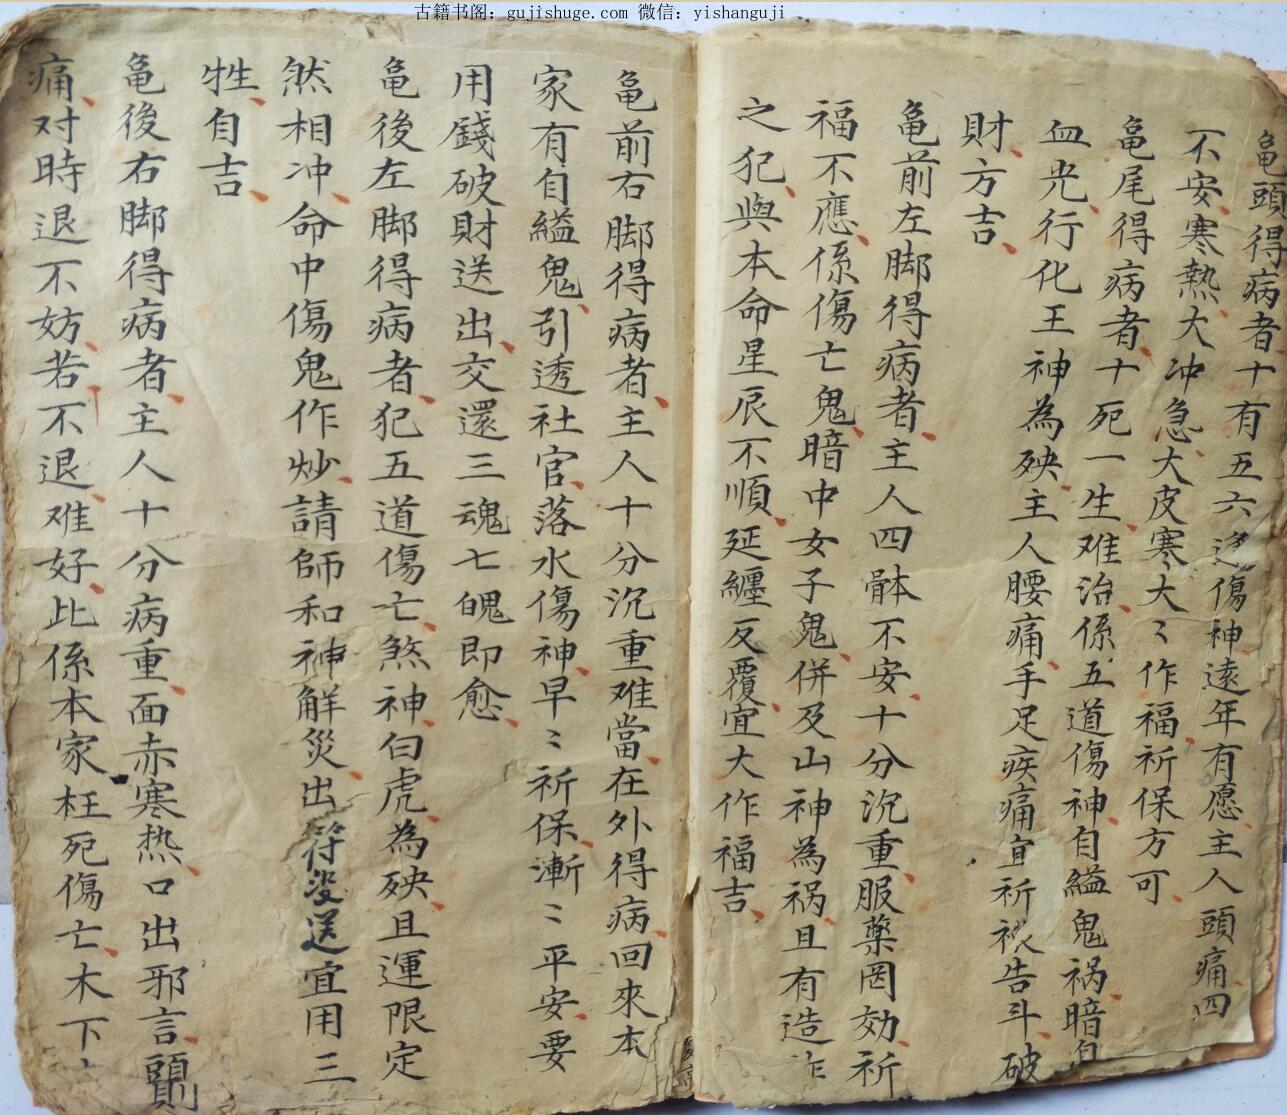 古籍书阁：gujishuge.com 微信：yishanguji
龟頭得病者十有五六逢傷神遠年有愿主人頭痛四
不安寒熱大冲急大皮寒大〻作福祈保方可
龟尾得病者十死一生难治係五道傷神自縊鬼祸暗自
血光行化王神為殃主人腰痛手足疾痛宜祈禳告斗破
財方吉
龟前左脚得病者主人四骵不安十分沉重服藥罔効祈
福不應係傷亡鬼暗中女子鬼併及山神為祸且有造作
之犯與本命星辰不順延纏反覆宜大作福吉
龟前右脚得病者主人十分沉重难當在外得病回來本
家有自縊鬼引透社官落水傷神早〻祈保漸〻平安要
用錢破財送出交還三魂七魄即愈
龟後左脚得病者犯五道傷亡煞神白虎為殃且運限定
然相冲命中傷鬼作炒請師和神解災出符送宜用三
牲自吉
龟後右脚得病者主人十分病重面赤寒热口出邪言頭
痛对時退不妨若不退难好此係本家枉死傷亡木下